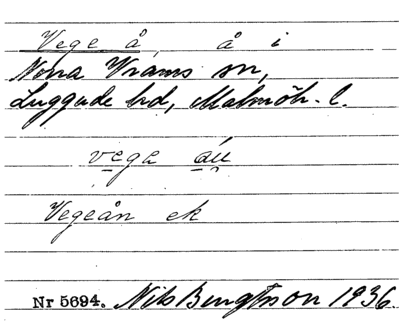 Vege å, å i
Norra Vrams sn,
Luggude hd, Malmöh. l.
vega áu
Vegeån ek
Nr 5694. Nils Bengtsson 1936.